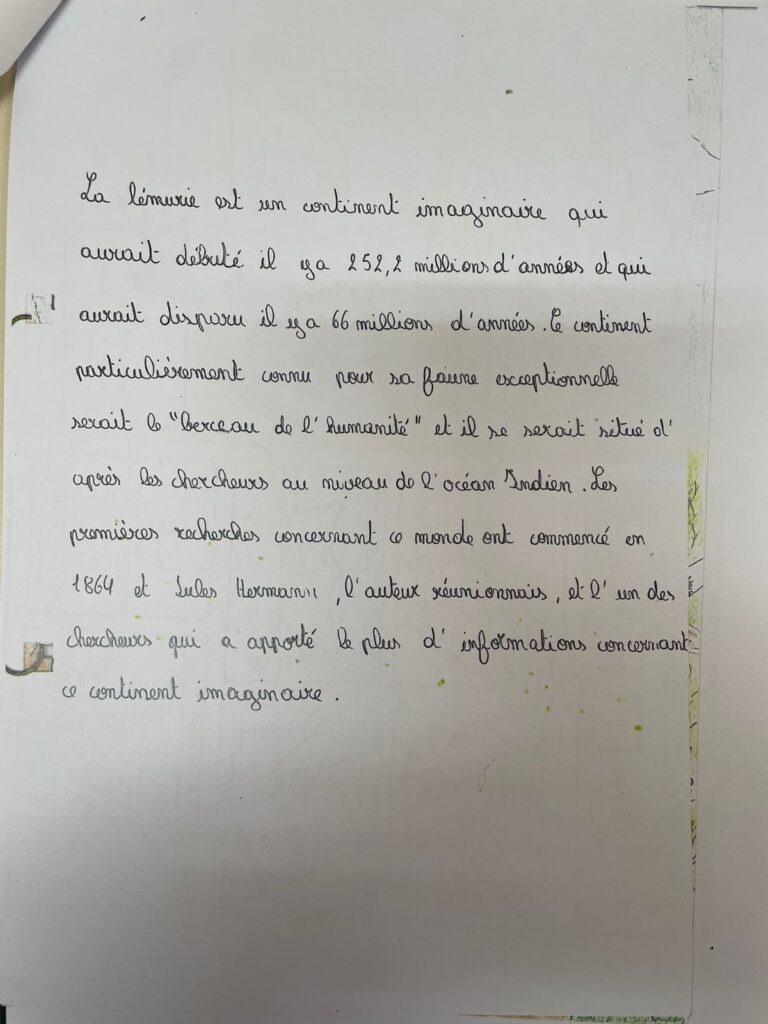 La lémurie est un continent imaginaire qui
aurait débuté il y a 252,2 millions d'années et qui
aurait disparu il y a 66 millions d'années. Ce continent
particuliérement connu pour sa faune exceptionnelle
serait le "berceau de l'humanité" et il se serait situé d'
après les chercheurs au niveau de l'océan Indien. Les
premières recherches concernant ce monde ont commencé en
1864 et Jules Hermann, l'auteur réunionnais, et l'un des
chercheurs qui a apporté le plus d'informations concernant
ce continent imaginaire.